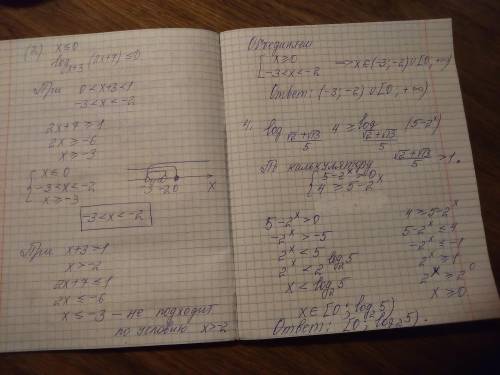 (2.) x ≤ 0
log_{x+3} (2x+7) ≤ 0
При 0 < x+3 < 1
-3 < x < -2
2x+7 ≥ 1
2x ≥ -6
x ≥ -3
{ x ≤ 0
-3 < x < -2
x ≥ -3
-3 -2 0 x
-3 < x < -2
При x+3 > 1
x > -2
2x+7 ≤ 1
2x ≤ -6
x ≤ -3 — не подходит
по условию x > -2
Объединяем
{ x ≥ 0
-3 < x < -2 => x ∈ (-3; -2) ∪ [0; +∞)
Ответ: (-3; -2) ∪ [0; +∞)
4. log_{(√2+√13)/5} 4 ≥ log_{(√2+√13)/5} (5-2^x)
По калькулятору (√2+√13)/5 > 1.
{ 5-2^x > 0
4 ≥ 5-2^x
5-2^x > 0
-2^x > -5
2^x < 5
2^x < 2^{log_2 5}
x < log_2 5
4 ≥ 5-2^x
5-2^x ≤ 4
-2^x ≤ -1
2^x ≥ 1
2^x ≥ 2^0
x ≥ 0
x ∈ [0; log_2 5)
Ответ: [0; log_2 5).